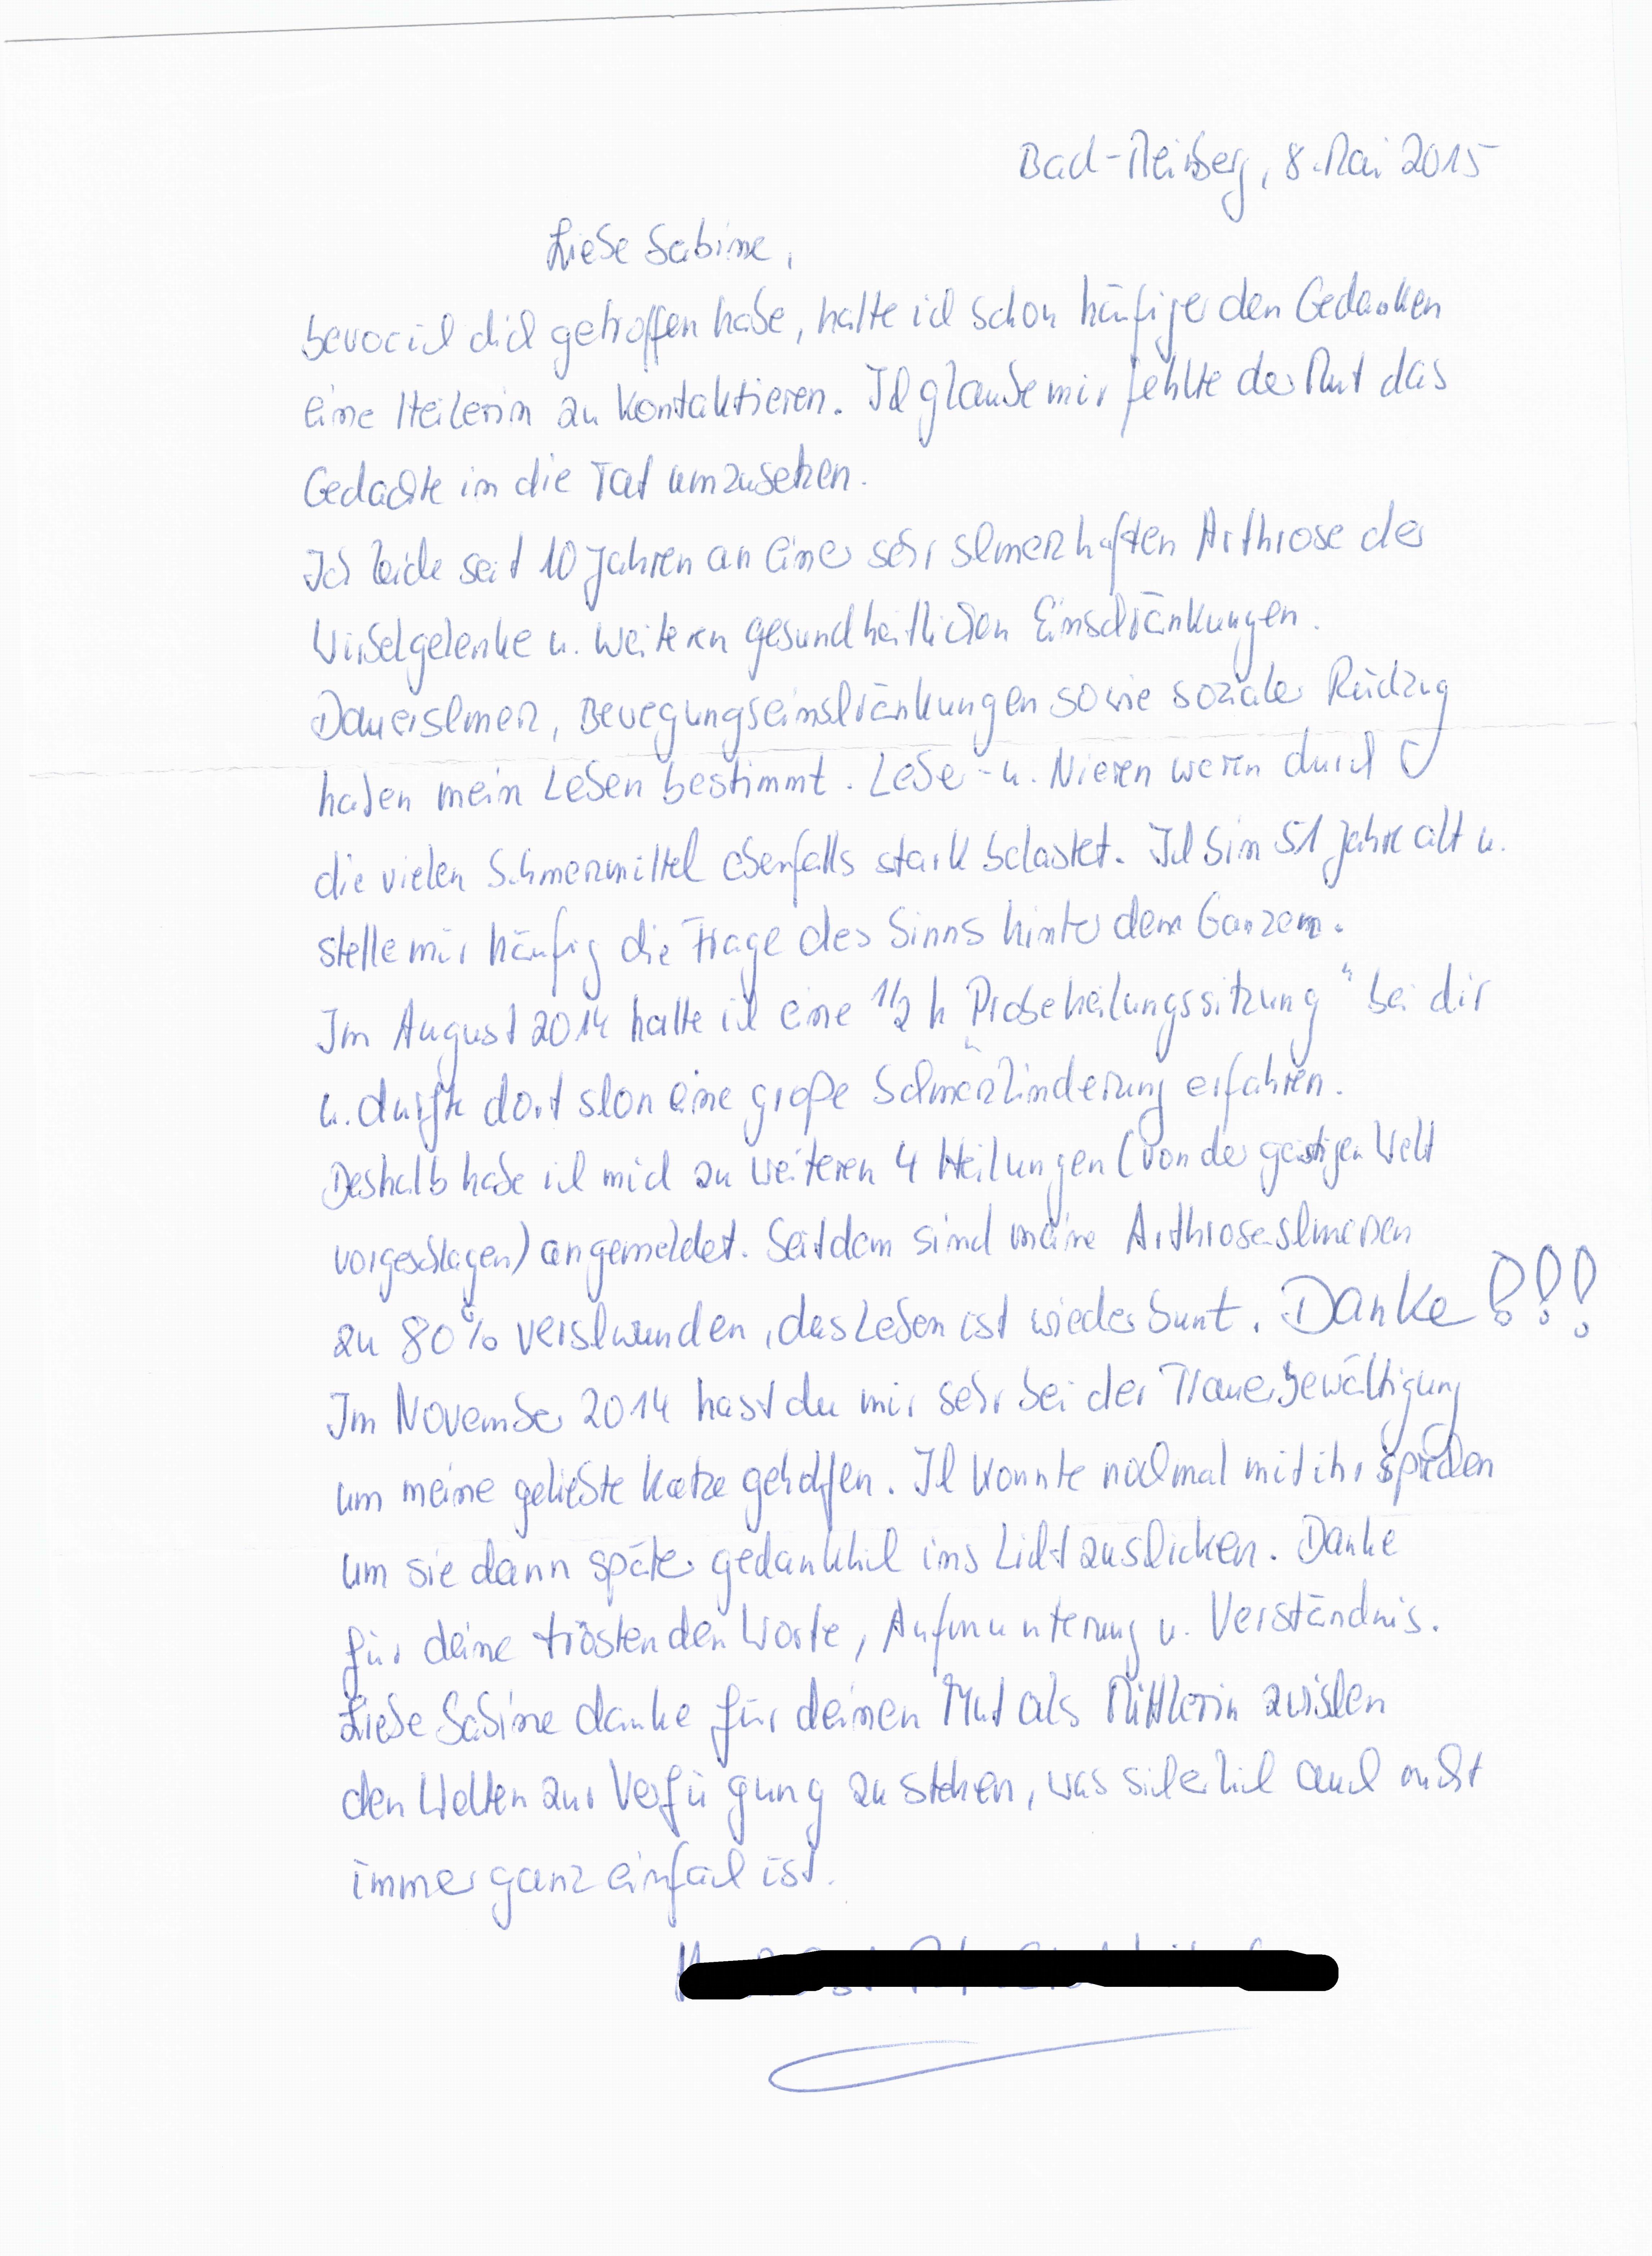 Bad-Meinberg, 8. Mai 2015
Liebe Sabine,
bevor ich dich getroffen habe, hatte ich schon häufiger den Gedanken
eine Heilerin zu kontaktieren. Ich glaube mir fehlte der Mut das
Gedachte in die Tat umzusetzen.
Ich leide seit 10 Jahren an einer sehr schmerzhaften Arthrose der
Wirbelgelenke u. weiteren gesundheitlichen Einschränkungen.
Dauerschmerz, Bewegungseinschränkungen sowie sozialer Rückzug
haben mein Leben bestimmt. Leber- u. Nieren waren durch
die vielen Schmerzmittel ebenfalls stark belastet. Ich bin 51 Jahre alt u.
stelle mir häufig die Frage des Sinns hinter dem Ganzem.
Im August 2014 hatte ich eine 1/2 h „Probeheilungssitzung“ bei dir
u. durfte dort schon eine große Schmerzlinderung erfahren.
Deshalb habe ich mich zu weiteren 4 Heilungen (von der geistigen Welt
vorgeschlagen) angemeldet. Seitdem sind meine Arthroseschmerzen
zu 80% verschwunden, das Leben ist wieder bunt. Danke!!!
Im November 2014 hast du mir sehr bei der Trauerbewältigung
um meine geliebte Katze geholfen. Ich konnte nochmal mit ihr spielen
um sie dann später gedanklich ins Licht zu schicken. Danke
für deine tröstenden Worte, Aufmunterung u. Verständnis.
Liebe Sabine danke für deinen Mut als Mittlerin zwischen
den Welten zur Verfügung zu stehen, was sicherlich auch nicht
immer ganz einfach ist.